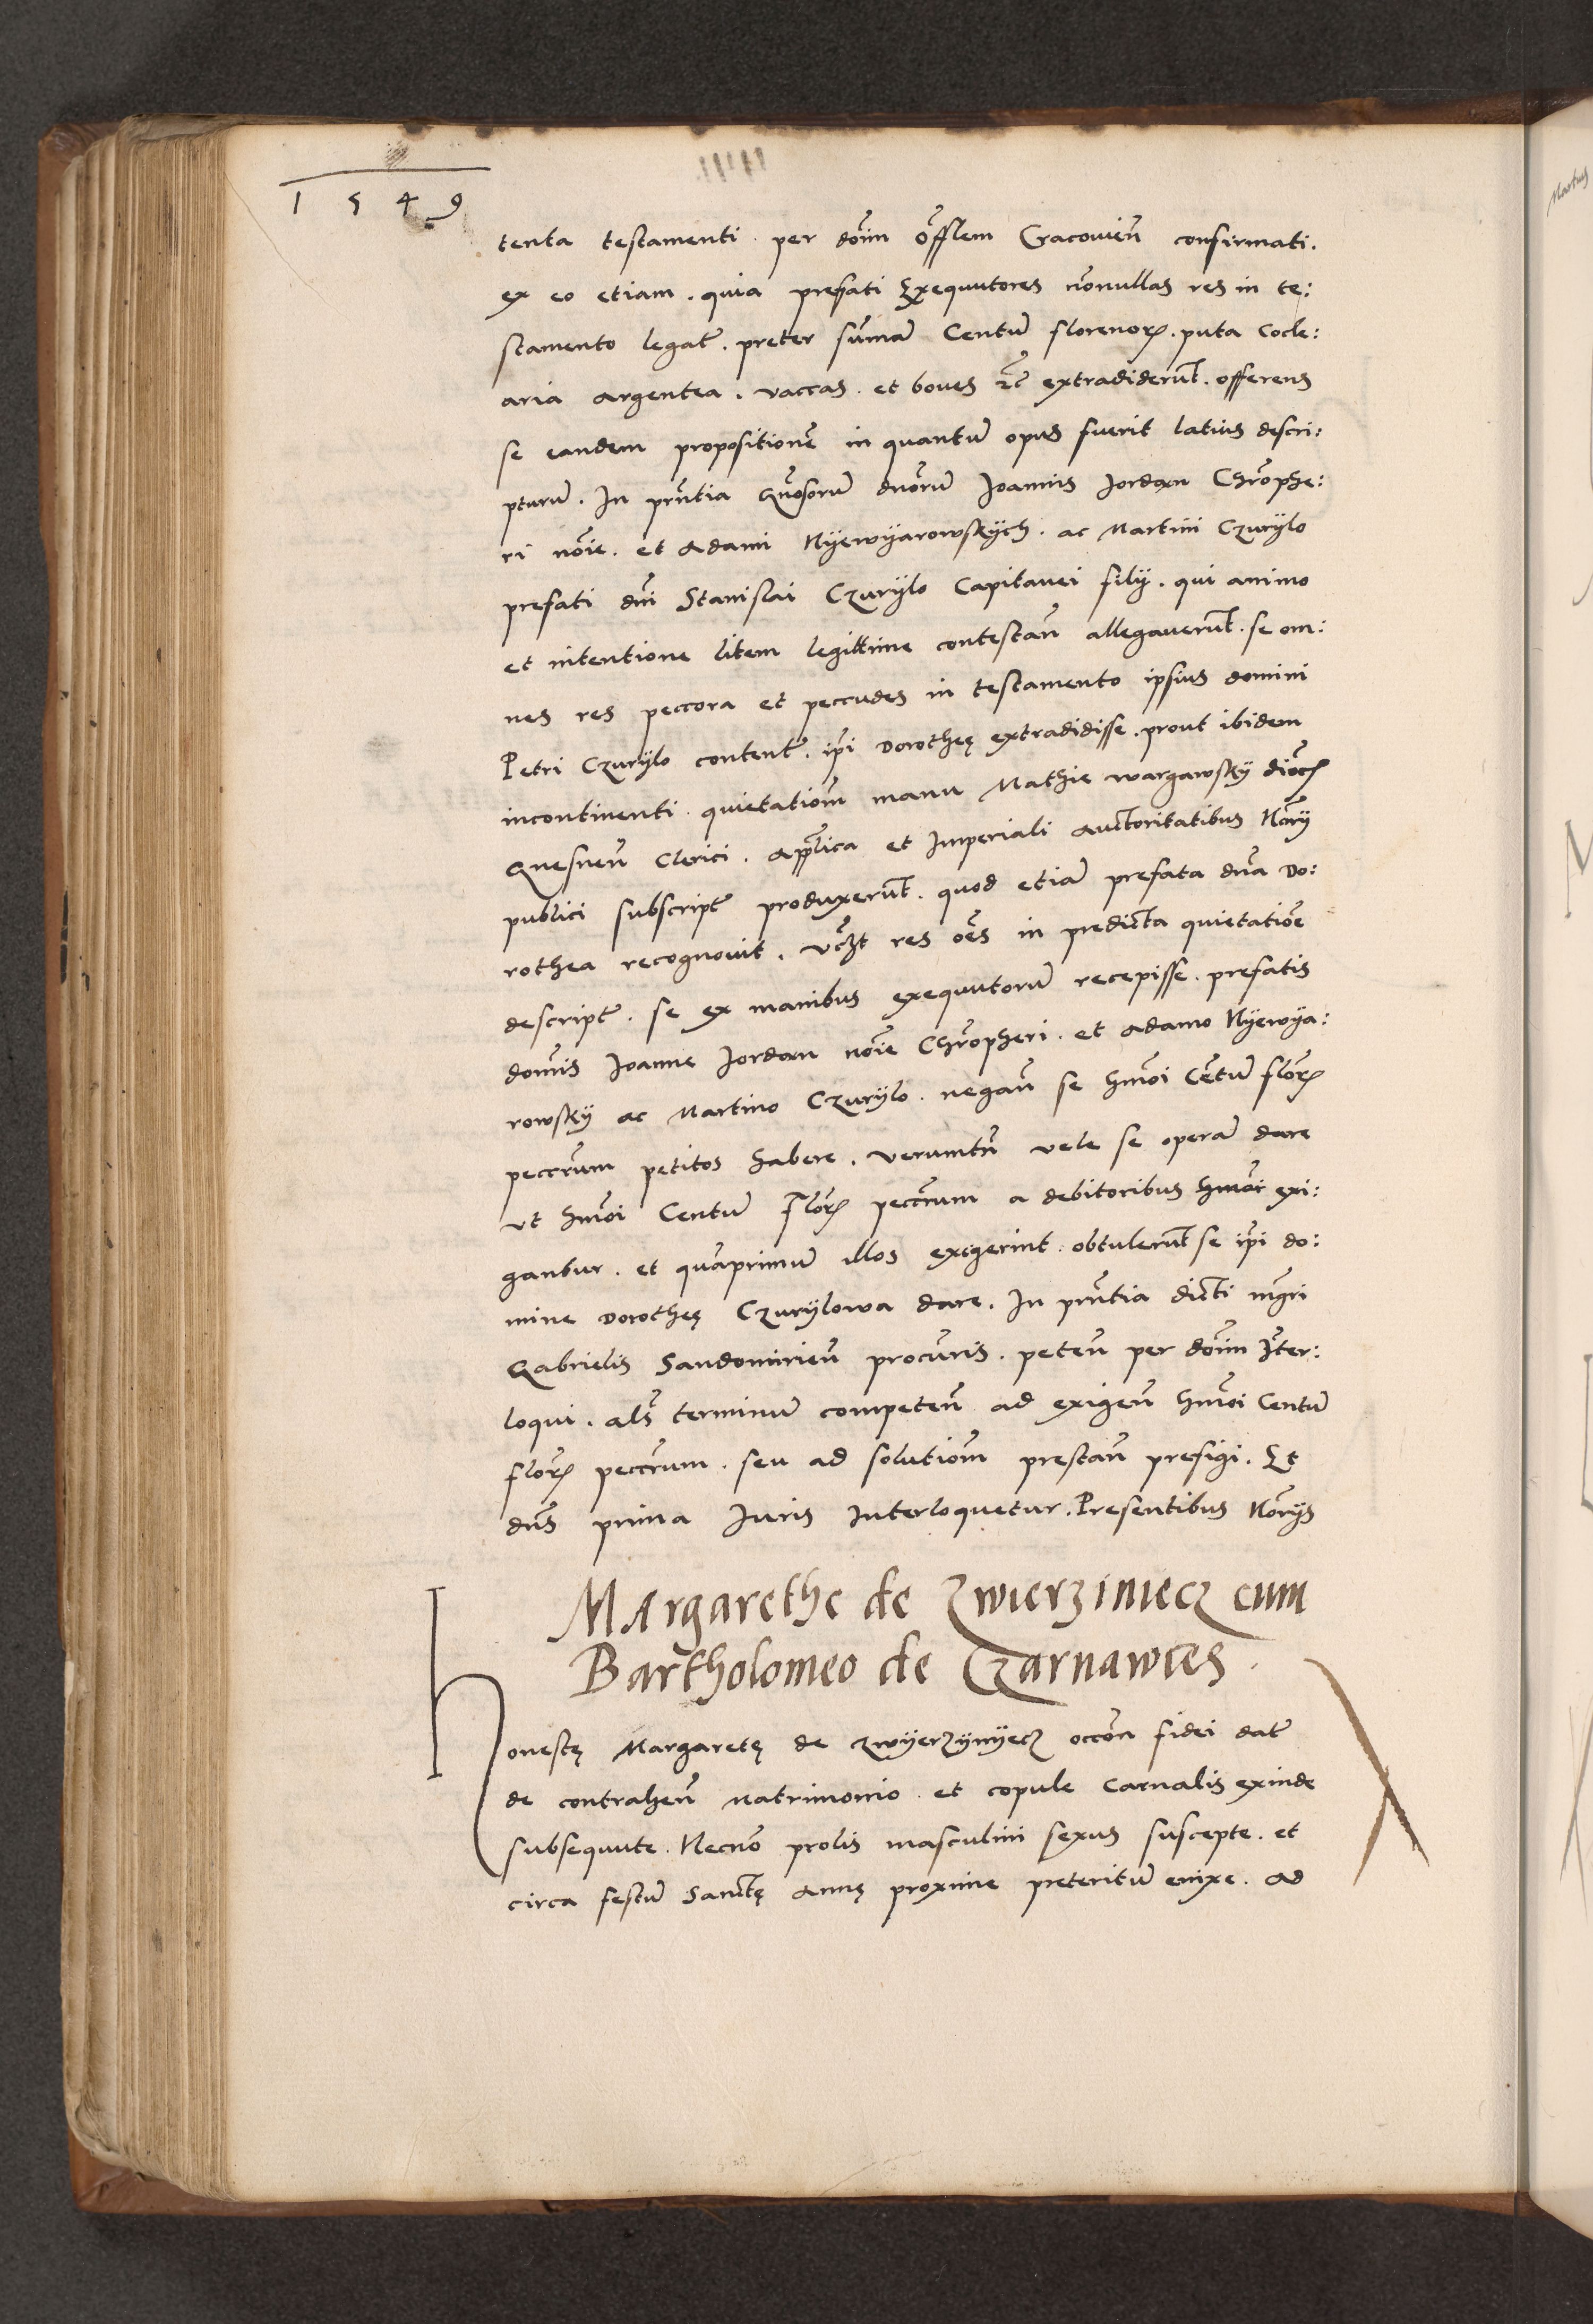 1549
tenta testamenti . per dom̃m offlem Cracovień confirmati .
ex eo etiam . quia prefati Exequutores nõnullas res in te:
stamento legat̃ . preter sum̃am Centũ florenorꝝ . puta Cocle:
aria argentea . vaccas . et boues ꝛc̃ extradiderũt . offerens
se eandem propositionẽ in quantũ opus fuerit latius descri:
pturũ . In pñtia Gñosorũ dnorũ Joannis Jordan Chrõphe:
ri nõie . et Adami Nyewyarowskych . ac Martini Czurylo
prefati dñi Stanislai Czurylo Capitanei filij . qui animo
et intentione litem legittime contestań allegaverũt . se om:
nes res peccora et peccudes in testamento ipsius domini
Petri Czurylo content̃ . ip̃i Dorotheę extradidisse . prout ibidem
incontinenti . quietatiom̃ manu Mathie wargawsky dioc̃
Gnesneñ Clerici . applica et Imperiali auctoritatibus Nõry
publici subscript̃ produxerũt . quod etiã prefata dña Do:
rothea recognovit . vcz̃t res oẽs in predicta quietatiõe
descript̃ . se ex manibus exequutorũ recepisse . prefatis
dom̃is Joanne Jordan nõie Chrõpheri . et Adamo Nyewya:
rowsky ac Martino Czurylo . negań se hmõi Centũ florꝝ
peccr̃um petitos habere . verumtñ vele se operã dare
vt hmõi Centũ Florꝝ peccr̃um a debitoribus hmõi exi:
gantur . et quãprimũ illos exegerint . obtulerũt se ip̃i do:
mine Dorotheę Czurylowa dare . In pñtia dicti mg̃ri
Gabrielis Sandomirień procur̃is . peteń per dom̃m Iñter:
loqui . als̃ terminũ competeń ad exigeń hmõi Centũ
florꝝ peccr̃um . seu ad solutiom̃ prestań prefigi . Et
dñs prima Juris Interloquetur . Presentibus Nõrijs
Margarethe de Zwierziniecz cum
Bartholomeo de Czarnawies .
Honestę Margaretę de Zwyerzynyecz occõn fidei dat̃
de contraheń matrimonio . et copule Carnalis exinde
subsequute . Necnõ prolis masculini sexus suscepte . et
circa festũ Sanctę Annę proxime preteritũ enixe . Ad